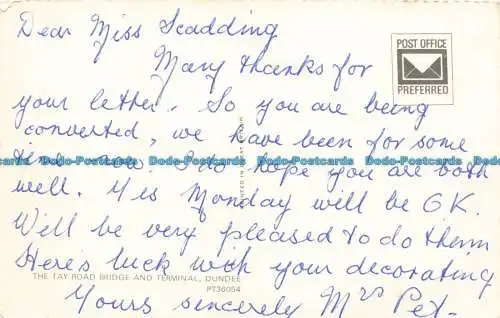 Dear Miss Scadding
Many thanks for
POST OFFICE
PREFERRED
your letter. So you are being
converted, we have been for some
time now. I do hope you are both
Dodo-Postcards Dodo-Postcards Dodo-Postcards Dodo-Postcards
well. Yes Monday will be O K.
Will be very pleased to do them
Here's luck with your decorating
THE TAY ROAD BRIDGE AND TERMINAL, DUNDEE
PT36054
Yours sincerely Mrs Pet-